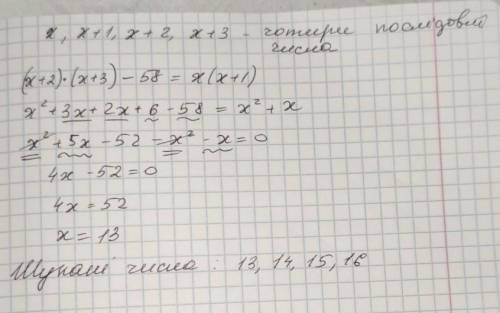 x, x+1, x+2, x+3 - чотири послідовні
числа
(x+2)·(x+3) - 58 = x(x+1)
x² + 3x + 2x + 6 - 58 = x² + x
x² + 5x - 52 - x² - x = 0
4x - 52 = 0
4x = 52
x = 13
Шукані числа: 13, 14, 15, 16